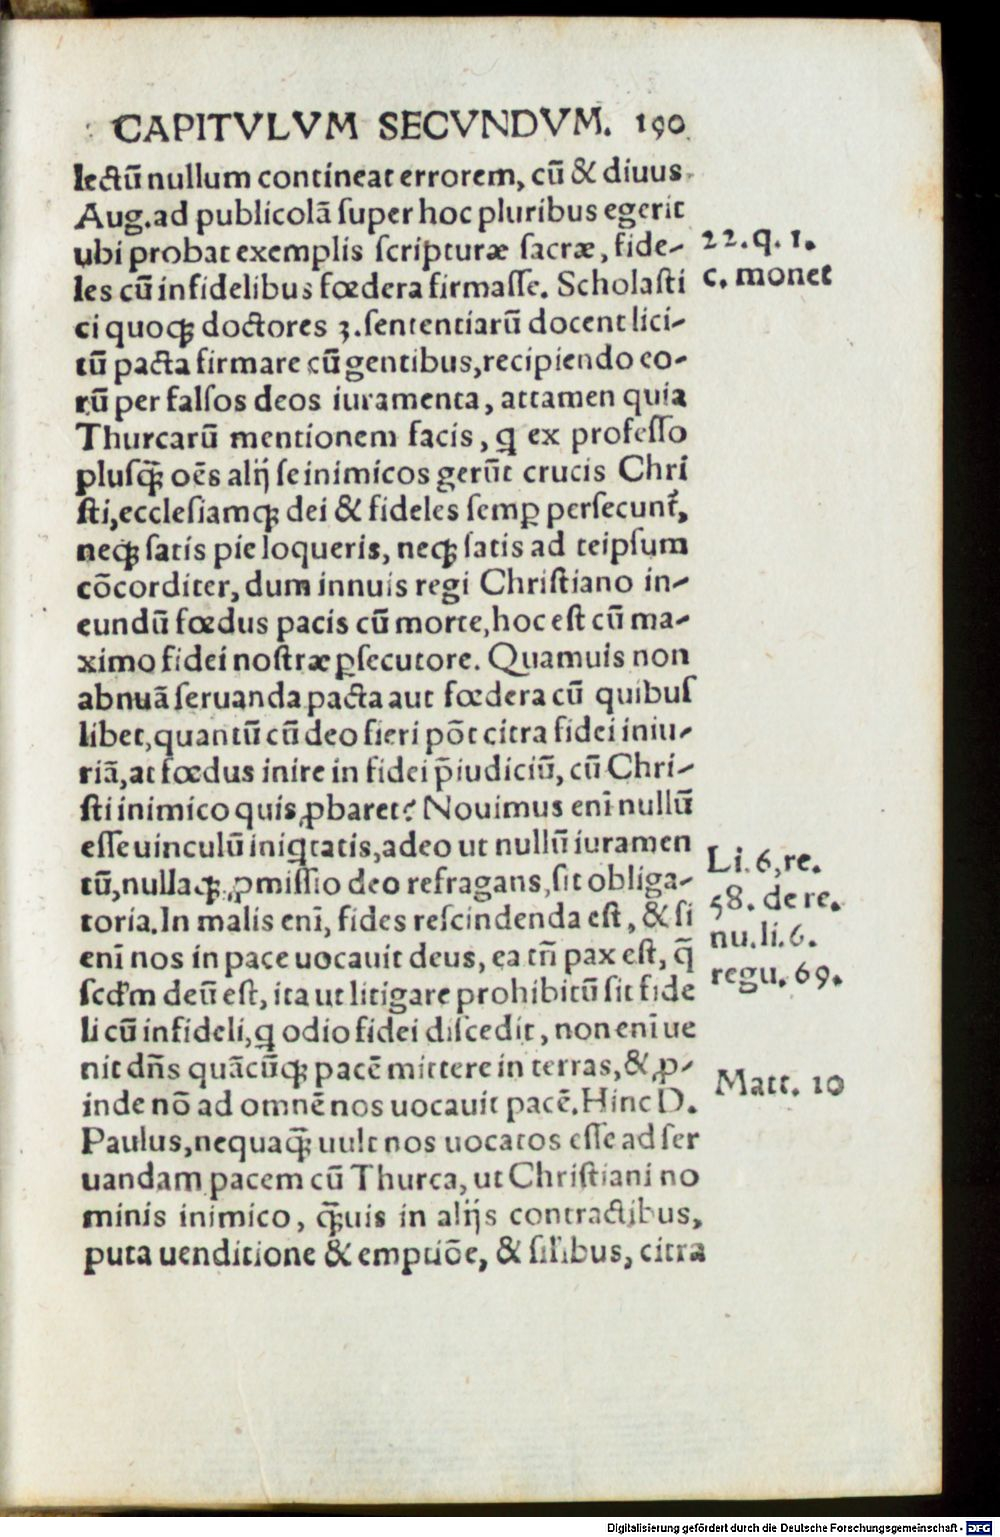 CAPITVLVM SECVNDVM. 190
lectū nullum contineat errorem, cū & diuus
Aug. ad publicolā ſuper hoc pluribus egerit
ubi probat exemplis ſcripturæ ſacræ, fide-
22. q. 1.
les cū infidelibus fœdera firmaſſe. Scholaſti
c. monet
ci quoqꝫ doctores 3. ſententiarū docent lici-
tū pacta firmare cū gentibus, recipiendo eo-
rū per falſos deos iuramenta, attamen quia
Thurcarū mentionem facis, ꝗ ex profeſſo
pluſꝗ̄ oēs alij ſe inimicos gerūt crucis Chri
ſti, eccleſiamqꝫ dei & fideles ſemꝑ perſecunt᷑,
neqꝫ ſatis pie loqueris, neqꝫ ſatis ad teipſum
cōcorditer, dum innuis regi Chriſtiano in-
eundū fœdus pacis cū morte, hoc eſt cū ma-
ximo fidei noſtræ ꝑſecutore. Quamuis non
abnuā ſeruanda pacta aut fœdera cū quibuſ
libet, quantū cū deo fieri pōt citra fidei iniu-
riā, at fœdus inire in fidei p̄iudiciū, cū Chri-
ſti inimico quis ꝓbaret? Nouimus enī nullū
eſſe uinculū iniꝗtatis, adeo ut nullū iuramen
Li. 6, re.
tū, nullaqꝫ ꝓmiſſio deo refragans, ſit obliga-
58. de re.
toria. In malis enī, fides reſcindenda eſt, & ſi
nu. li. 6.
enī nos in pace uocauit deus, ea tn̄ pax eſt, q̄
regu. 69.
ſcd'm deū eſt, ita ut litigare prohibitū ſit fide
li cū infideli, ꝗ odio fidei diſcedit, non enī ue
nit dn̄s quācūqꝫ pacē mittere in terras, & ꝓ-
Matt. 10
inde nō ad omnē nos uocauit pacē. Hinc D.
Paulus, nequaꝗ̄ uult nos uocatos eſſe ad ſer
uandam pacem cū Thurca, ut Chriſtiani no
minis inimico, ꝗ̄uis in alijs contractibus,
puta uenditione & emptiōe, & ſil'ibus, citra
Digitalisierung gefördert durch die Deutsche Forschungsgemeinschaft - DFG